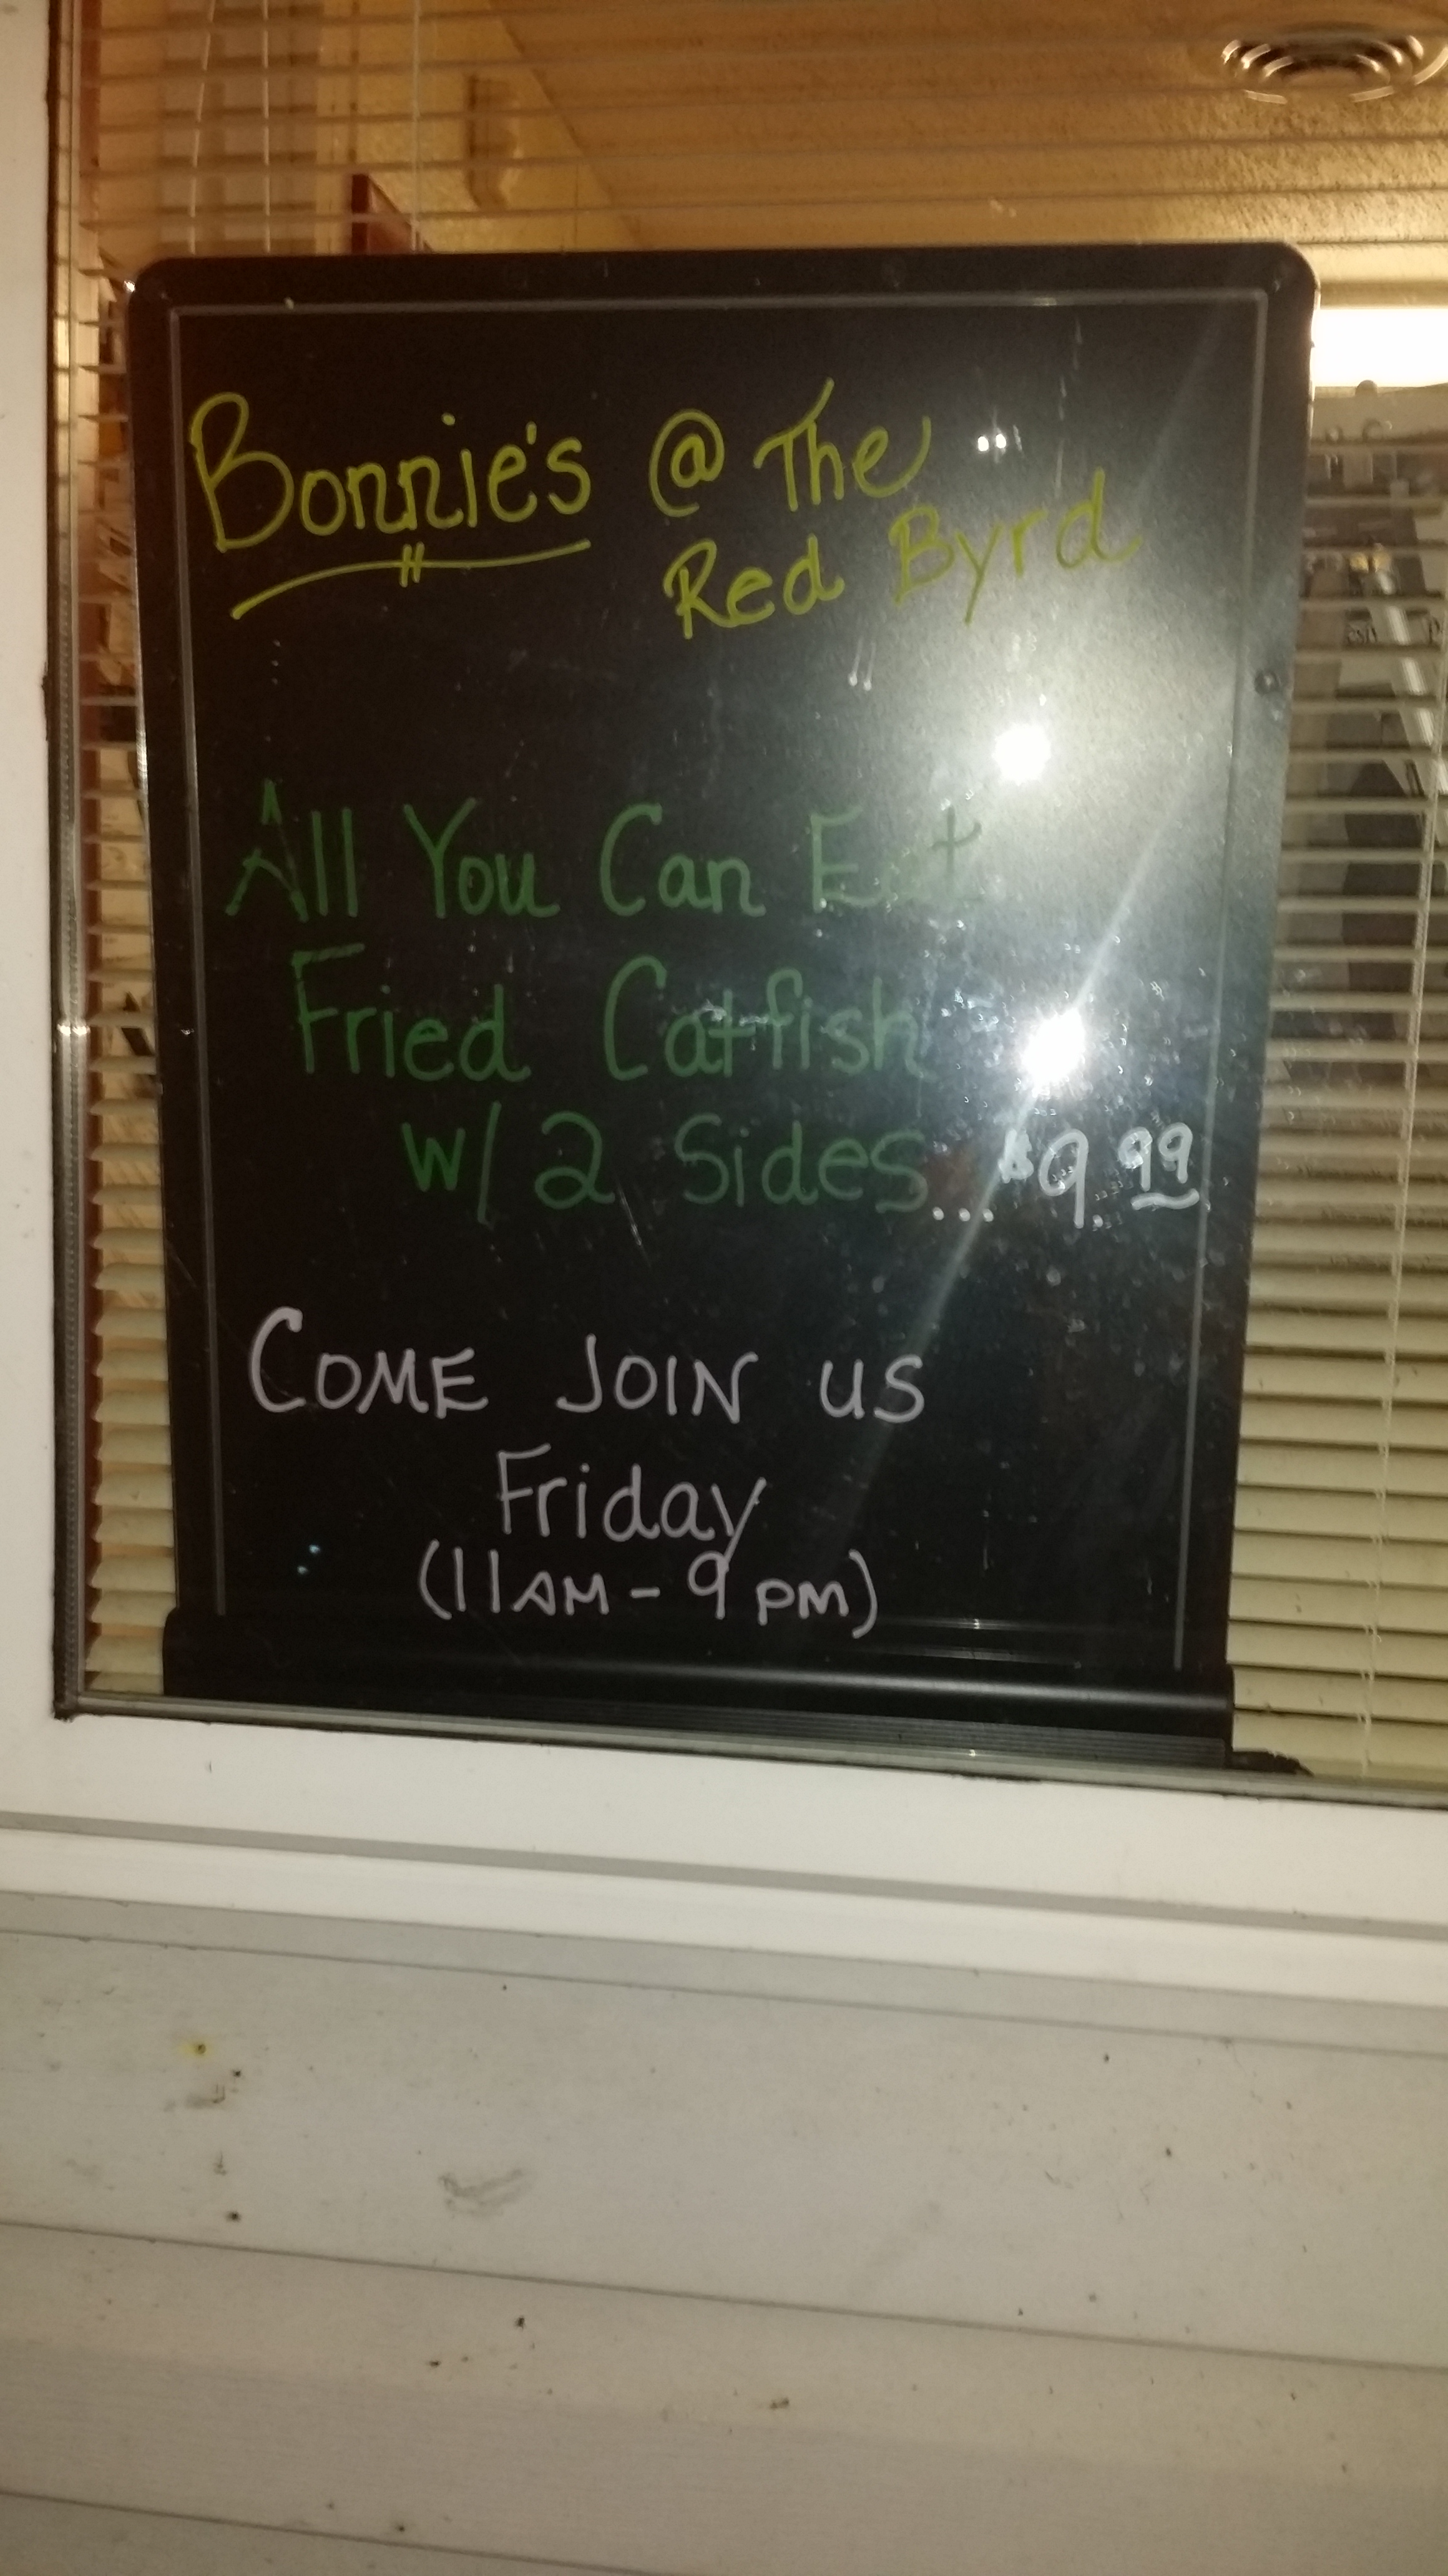 Bonnie's @ The
Red Byrd
All You Can Eat
Fried Catfish
w/ 2 Sides... $9.99
COME JOIN US
Friday
(11AM - 9PM)